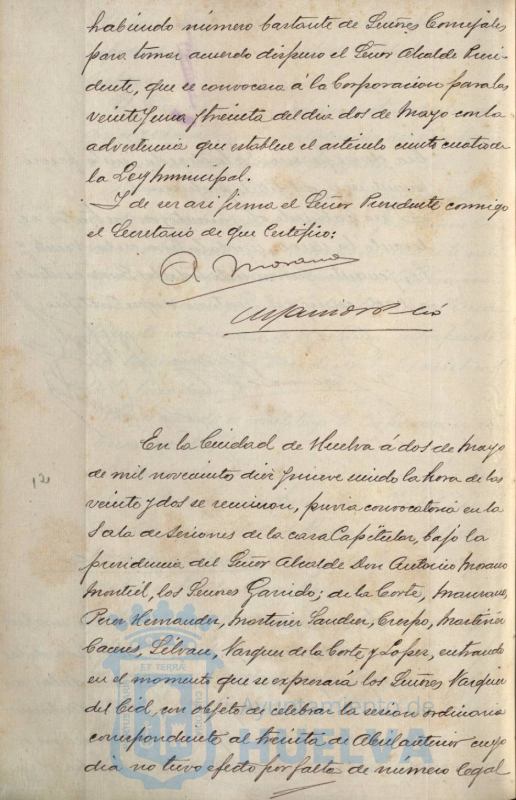 habiendo número bastante de Señores Concejales
para tomar acuerdo dispuso el Señor Alcalde Presi-
dente, que se convocara á la Corporacion para las
veinte y una y treinta del dia dos de Mayo con la
advertencia que establece el artículo ciento cuatro de
la Ley Municipal.
Y de ser asi firma el Señor Presidente conmigo
el Secretario de que Certifico:
A Morano
En la Ciudad de Huelva á dos de Mayo
12
de mil novecientos diez y nueve siendo la hora de las
veinte y dos se reunieron, previa convocatoria en la
Sala de Sesiones de la casa Capitular, bajo la
presidencia del Señor Alcalde Don Antonio Morano
Montiel, los Señores Garrido; de la Corte,
Perez Hernandez, Martinez Sanchez, Crespo, Martinez
Vazquez de la Corte y Lopez, entrando
en el momento que se expresará los Señores Vazquez
del Cid, con objeto de celebrar la sesion ordinaria
correspondiente al treinta de Abril anterior cuyo
dia no tuvo efecto por falta de número legal
ET TERRÆ
Ayuntamiento de
HUELVA